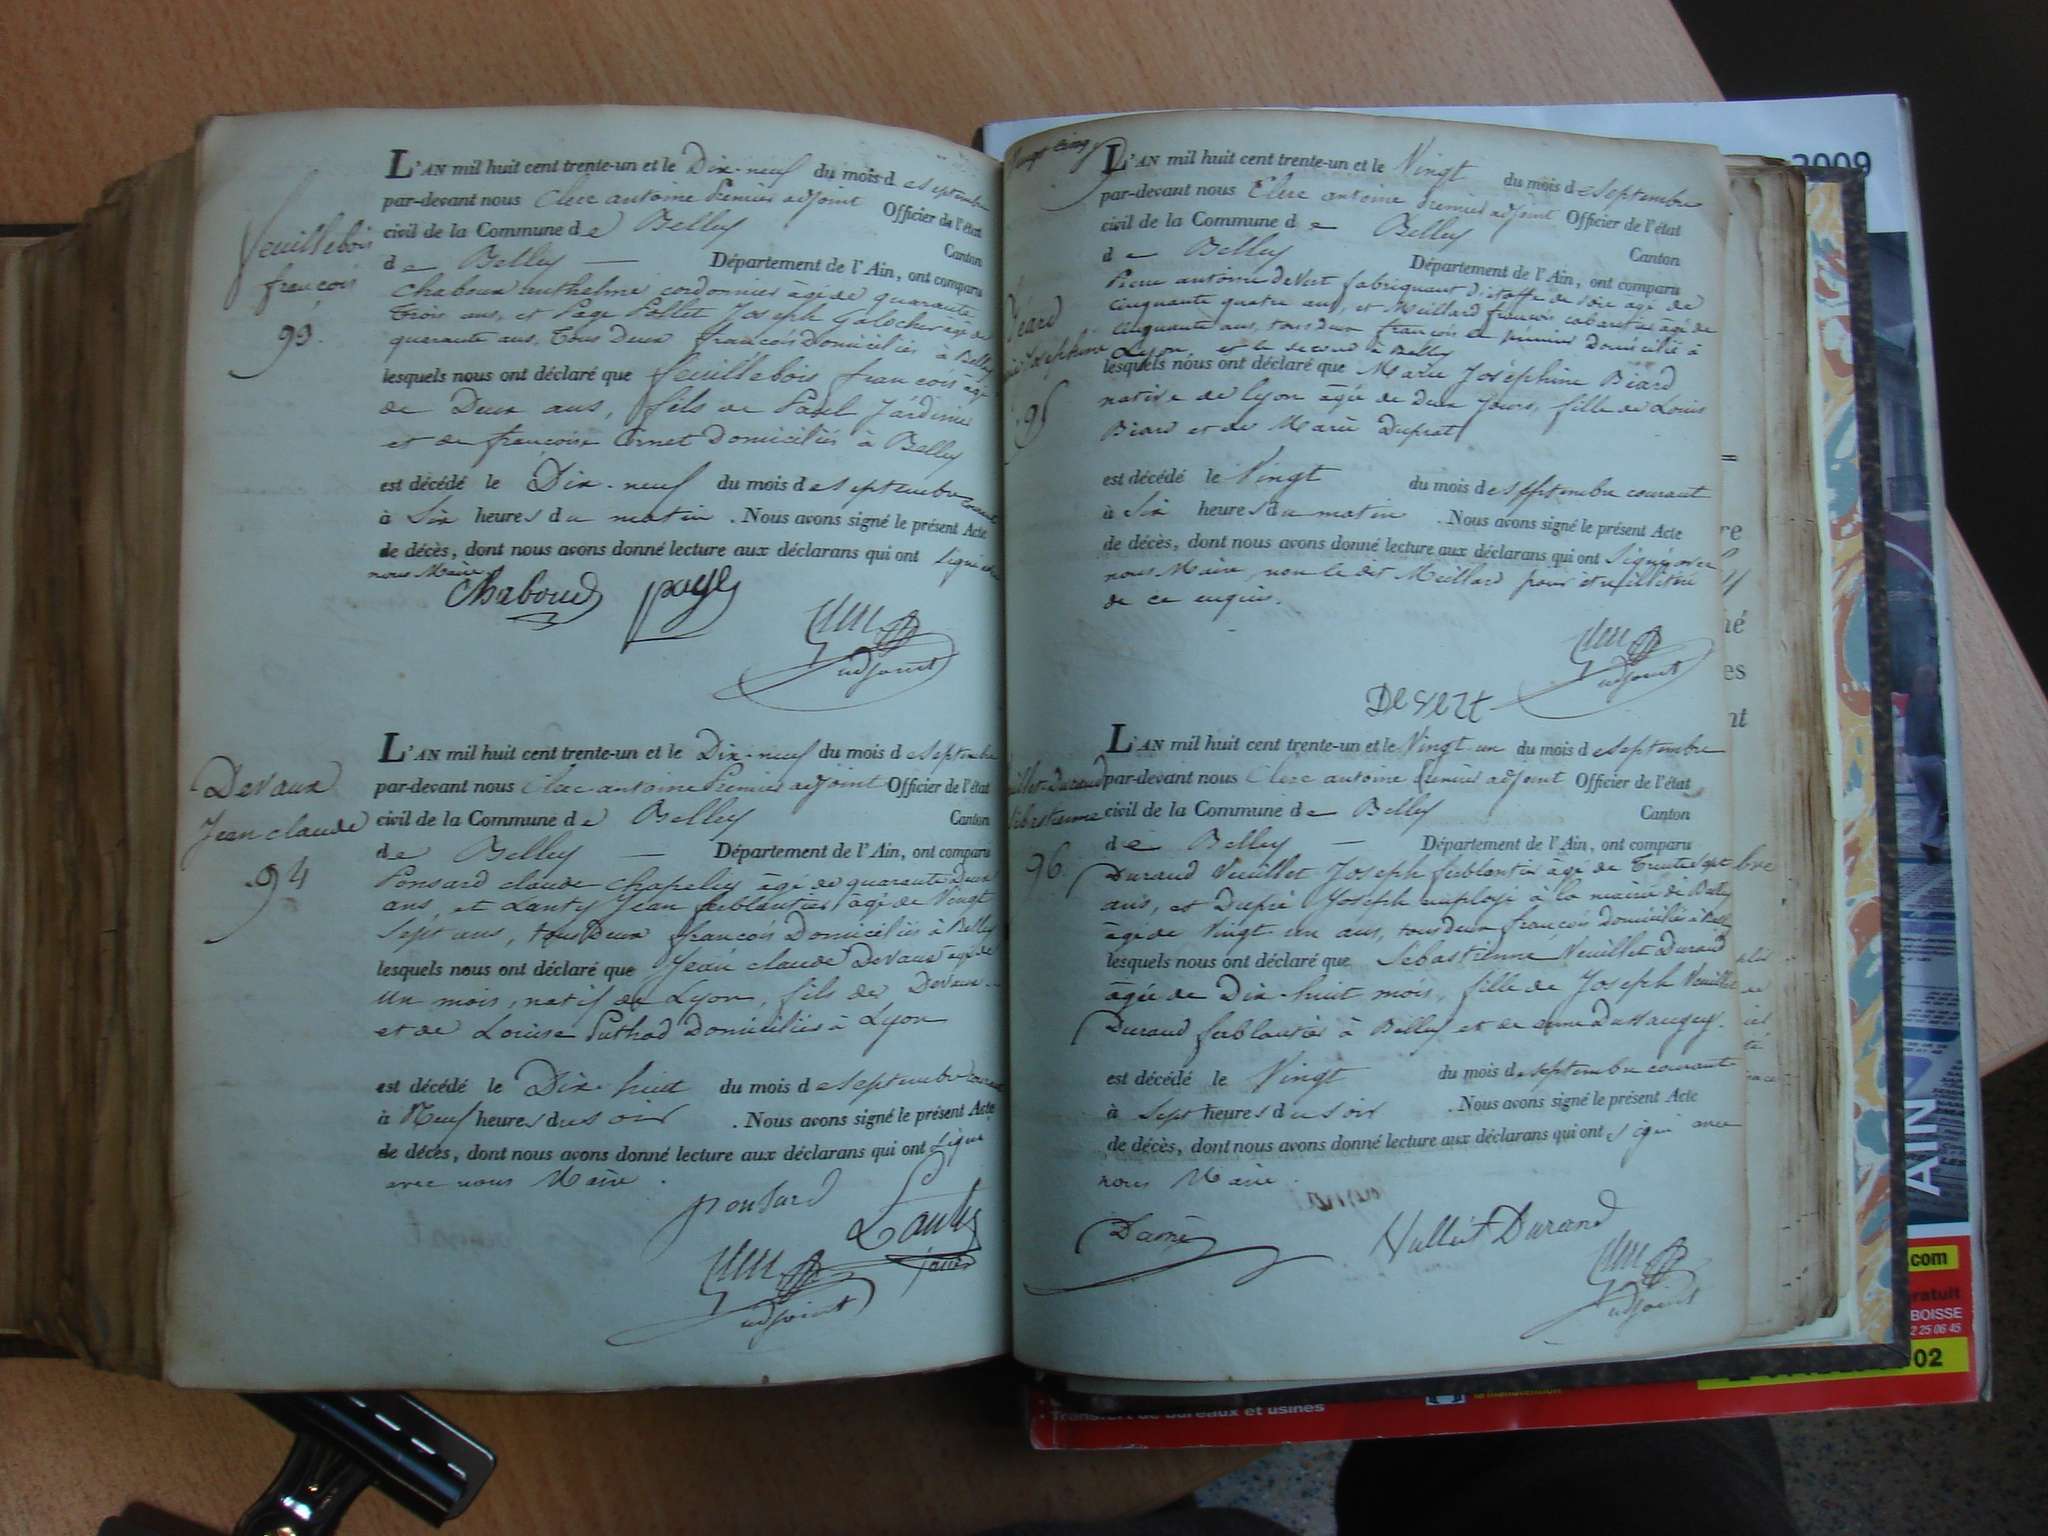 feuillebois
françois
93.
L'AN mil huit cent trente-un et le Dix-neuf du mois de septembre
par-devant nous Clerc antoine Premier adjoint Officier de l'état
civil de la Commune de Belley Canton
de Belley — Département de l'Ain, ont comparu
Chaboux anthelme cordonnier âgé de quarante
trois ans, et Page Pollet Joseph Galocher âgé de
quarante ans, tous Deux françois Domiciliés à Belley
lesquels nous ont déclaré que feuillebois françois âgé
de Deux ans, fils de Paul Jardinier
et de françoise Cornet Domiciliés à Belley
est décédé le Dix-neuf du mois de septembre courant
à Six heures du matin. Nous avons signé le présent Acte
de décès, dont nous avons donné lecture aux déclarans qui ont signé avec
nous Maire.
Chaboud page
Clerc
adjoint
Devaux
Jean claude
94
L'AN mil huit cent trente-un et le Dix-neuf du mois de septembre
par-devant nous Clerc antoine Premier adjoint Officier de l'état
civil de la Commune de Belley Canton
de Belley — Département de l'Ain, ont comparu
Ponsard claude chapelier âgé de quarante Deux
ans, et Lanty Jean ferblantier âgé de Vingt
Sept ans, tous Deux françois Domiciliés à Belley
lesquels nous ont déclaré que Jean claude Devaux âgé de
un mois, natif de Lyon, fils de Devaux
et de Louise Puthod Domiciliés à Lyon
est décédé le Dix-huit du mois de septembre courant
à Neuf heures du soir. Nous avons signé le présent Acte
de décès, dont nous avons donné lecture aux déclarans qui ont signé
avec nous Maire.
ponsard Lanty
Clerc
adjoint
Vingt Cinq
Biard
Josephine
95
L'AN mil huit cent trente-un et le Vingt du mois de septembre
par-devant nous Clerc antoine Premier adjoint Officier de l'état
civil de la Commune de Belley Canton
de Belley Département de l'Ain, ont comparu
Pierre antoine deVert fabriquant d'étoffe de soie âgé de
cinquante quatre ans, et Meillard françois cabaretier âgé de
cinquante ans, tous deux françois le premier domicilié à
Lyon et le second à Belley
lesquels nous ont déclaré que Marie Joséphine Biard
native de lyon âgée de Deux Jours, fille de Louis
Biard et de Marie Duprat
est décédé le Vingt du mois de septembre courant
à Six heures du matin. Nous avons signé le présent Acte
de décès, dont nous avons donné lecture aux déclarans qui ont signé avec
nous Maire, non le dit Meillard pour être illitéré
de ce enquis.
Clerc
adjoint
DeVeRt
Durand
Sébastienne
96.
L'AN mil huit cent trente-un et le Vingt-un du mois de septembre
par-devant nous Clerc antoine Premier adjoint Officier de l'état
civil de la Commune de Belley Canton
de Belley — Département de l'Ain, ont comparu
Durand Veuillet Joseph ferblantier âgé de Trente sept
ans, et Joseph employé à la mairie de Belley
âgé de Vingt-un ans, tous Deux françois Domiciliés à Belley
lesquels nous ont déclaré que Sébastienne Veuillet Durand
âgée de Dix-huit mois, fille de Joseph Veuillet
Durand ferblantier à Belley et de anne Dussaugey.
est décédé le Vingt du mois de septembre courant
à Sept heures du soir. Nous avons signé le présent Acte
de décès, dont nous avons donné lecture aux déclarans qui ont signé avec
nous Maire.
Vulliet Durand
Clerc
adjoint
2009
AIN
.com
gratuit
BOISSE
2 25 06 45
02
la manutention
Transfert de bureaux et usines